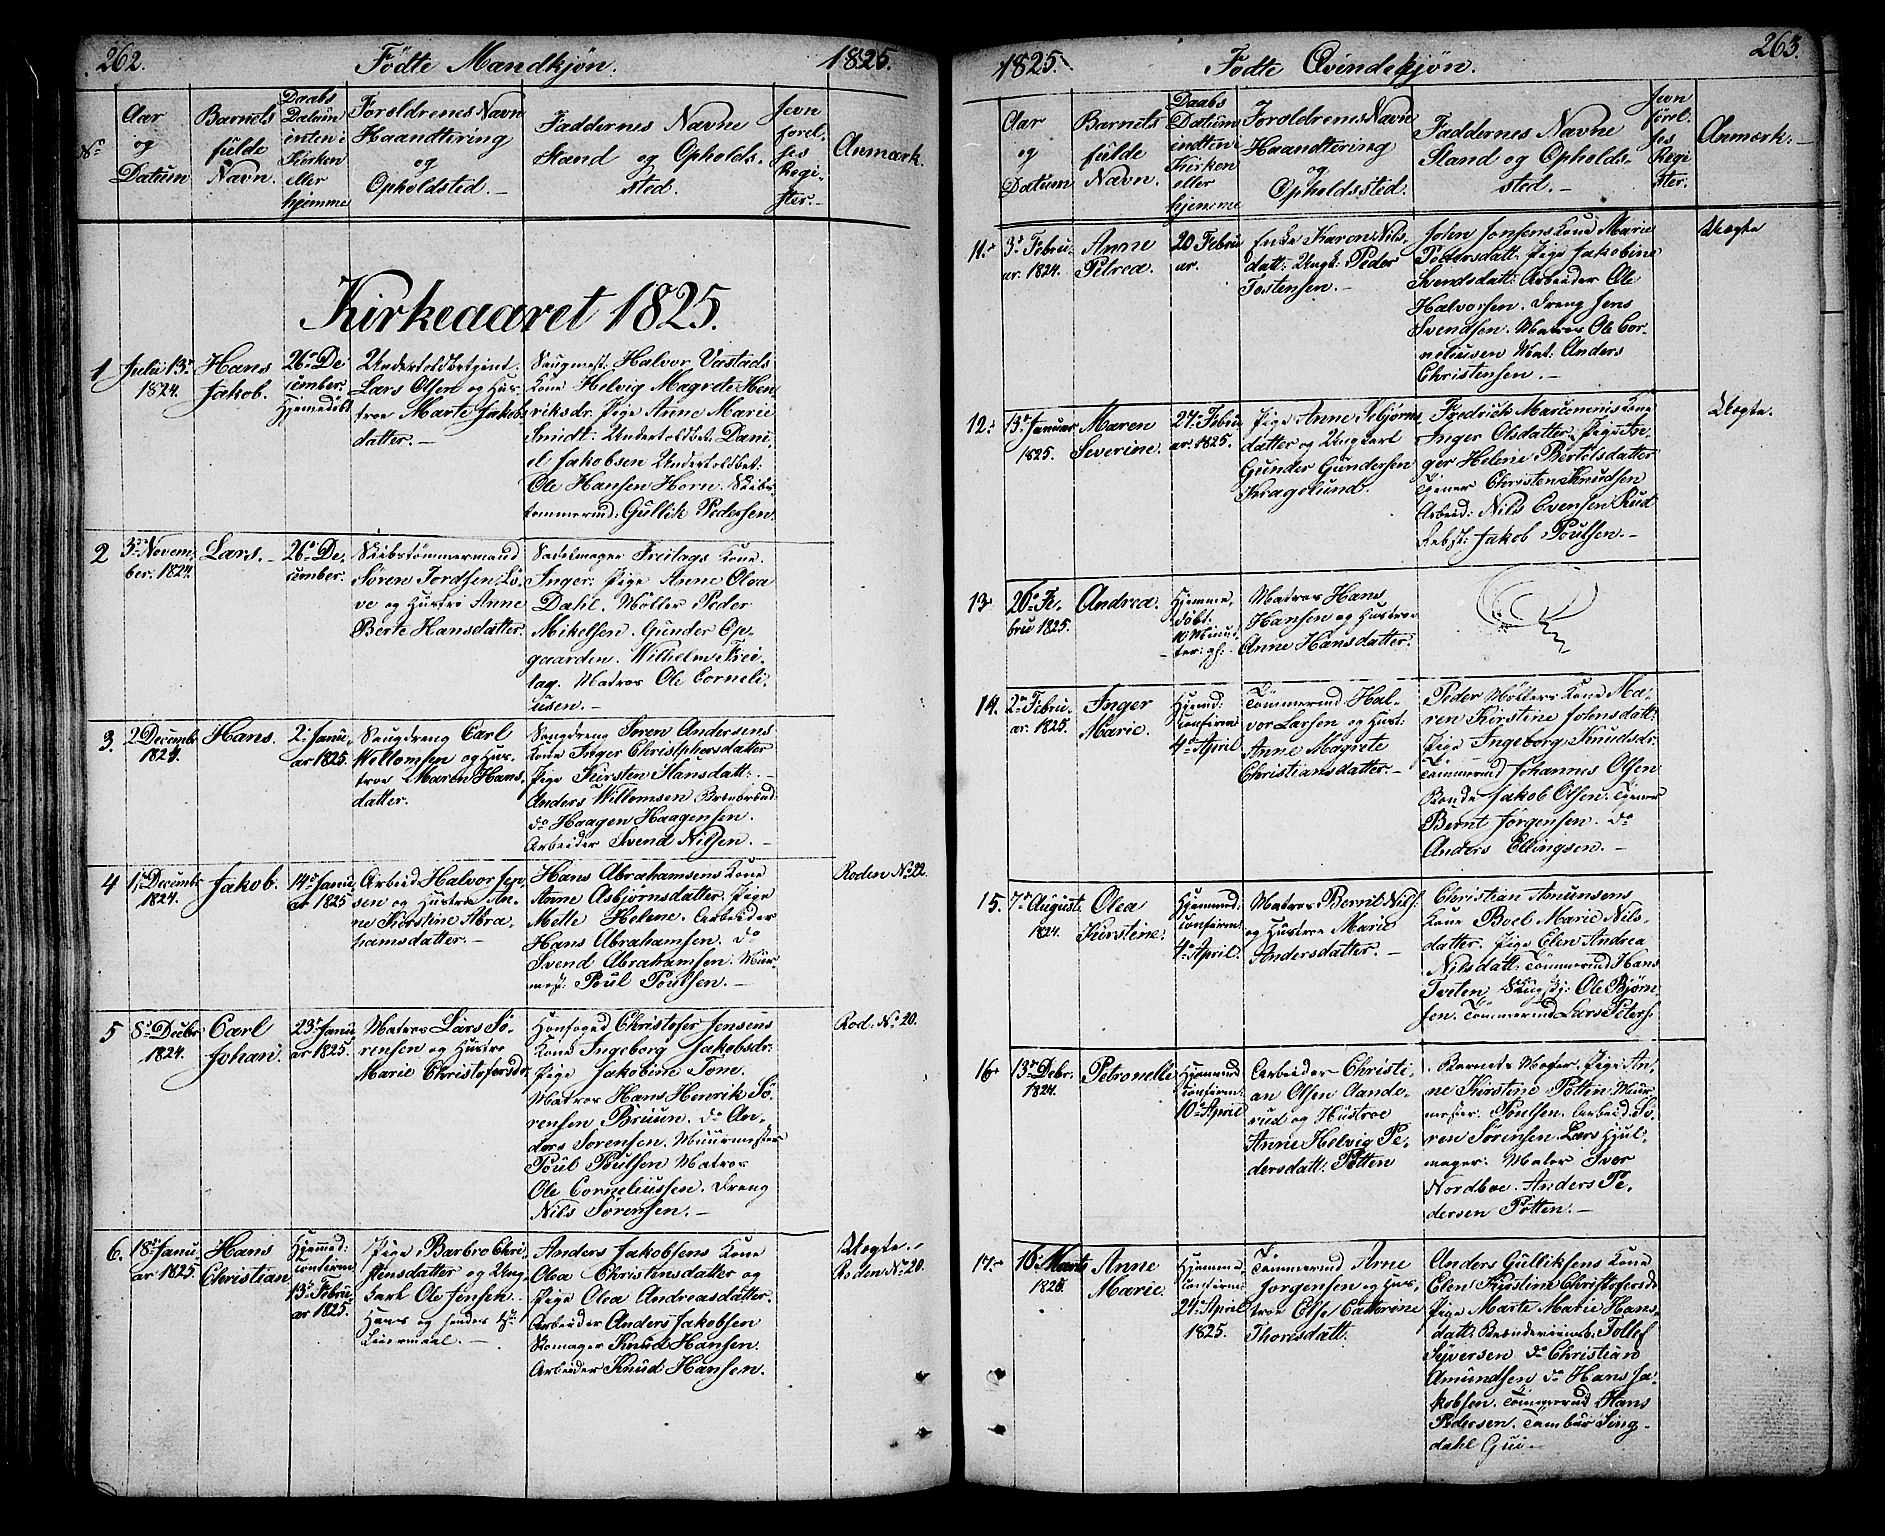 262.
Födte Mandkjön.
1825.
No
Aar
og
Datum
Barnets
fulde
Navn.
Daabs
Datum
enten i
Kirken
eller
hjemme
Foreldrenes Navn
Haandtering
og
Opholdsted. –
Faddernes Navne
Stand og Opholds-
sted.
Jevn
förel-
ses
Regi-
ster. –
Anmærk.
Kirkeaaret 1825.
1
Julii 13de
1824.
Hans
Jakob.
26de De
cember.
Hjemedöbt
Undertoldbetjent
Lars Olsen og Hus-
troe Marte Jakobs
datter. –
Saugmest. Halvor Vastads
Kone Helvig Magrete Hen
riksdr. Pige Anne Marie
Smidt: Undertoldbet: Dani-
el Jakobsen Undertoldbet:
Ole Hansen Horn. Skibs
tømmermd: Gullik Pedersen.
2
3de Novem
ber. 1824.
Lars. –
26de De-
cember.
Skibstømmermand
Sören Tordsen Lö-
ve og Hustro Anne
Berte Hansdatter.
Sadelmager Freitags Kone
Inger: Pige Anne Olea
Dahl. Møller Peder
Mikelsen. Gunder Op-
gaarden. Wilhelm Frei-
tag. Matros Ole Corneli-
usen. –
3.
2 Decembr
1824.
Hans.
2de Janu-
ar 1825.
Saugdreng Carl
Wellomsen og Hus-
troe Maren Hans-
datter.
Saugdreng Sören Andersens
Kone Inger Christphersdatter
Pige Kirsten Hansdatt: –
Anders Willomsen
do Haagen Haagensen.
Arbeider Svend Nilsen. –
4
17de Decembr
1824.
Jakob.
14de Janu-
ar 1825
Arbeid Halvor Jep-
sen og Hustroe An-
ne Kirstine Abra
hamsdatter. –
Hans Abrahamsens Kone
Anne Asbjörnsdatter. Pige
Mette Helene. Arbeider
Hans Abrahamsen. do
Svend Abrahamsen. Mur-
mest: Poul Poulsen. –
Roden No 22.
5
8de Decbr
1824.
Carl
Johan.
23de Janu
ar 1825.
Matros Lars Sö-
rensen og Hustro
Marie Christofersdr
Havfoged Christofer Jensens
Kone Ingeborg Jakobsdr:
Pige Jakobine Tone.
Matros Hans Henrik Sö-
rensen Bruun. do An-
ders Sörensen. Muurmester
Poul Poulsen Matros
Ole Corneliussen. Dreng
Nils Sörensen. –
Rod. No 20.
6.
18de Janu-
ar 1825.
Hans
Christian
Hjemmed:
confirm
13de Febru-
ar 1825.
Pige Barbro Chri-
stensdatter og Ung-
karl Ole Jensen
Hans og hendes 1ste
Leiermaal. –
Anders Jakobsens Kone
Olea Christensdatter og
Pige Olea Andreasdatter.
Arbeider Anders Jakobsen
Skomager Knud Hansen.
Arbeider Knud Hansen.
Uægte. –
Roden No 20.
1825.
Födte Qvindekjön.
263.
Aar
og
Datum
Barnets
fulde
Navn.
Daabs
Datum
endten i
Kirken
eller
hjemme
Foreldrenes Navn
Haandtering
og
Opholdssted.
Faddernes Navne
Stand og Opholds-
sted. –
Jevn
förel-
ses
Regi-
ster.
Anmærk. –
11.
3de Febru-
ar. 1824.
Anne
Petrea.
20 Febru
ar.
Enke Karen Nils-
datt: Ungk: Peder
Tostensen. –
John Jonsens Kone Marie
Pedersdatt. Pige Jakobine
Svendsdatt: Arbeider Ole
Halvorsen. Dreng Jens
Svendsen. Matros Ole Cor-
neliusen Mat: Anders
Christensen. –
Uægte
12.
13de Januar
1825.
Maren
Severine.
27de Febru
ar. 1825.
Pige Anne Asbjörns
datter og Ungkarl
Gunder Gundersen
Kragelund.
Fredrick Kone
Inger Olsdatter. Pige In-
ger Helene Bertelsdatter
Tjener Christen Knudsen
Arbeid: Nils Evensen Rud
Rebsl: Jakob Poulsen. –
Uægte.
13
26de Fe-
bru 1825.
Andrea.
Hjemme-
döbt.
10 Minut
ter: gl:
Matros Hans
Hansen og Hustroe
Anne Hansdatter.
14.
2de Febru-
ar. 1825.
Inger
Marie.
Hjemd:
Confirm
4de April
Tömmermd Hal-
vor Larsen og Hust:
Anne Magrete
Christiansdatter. –
Peder Møllers Kone Ma-
ren Kirstine Johnsdatt:
Pige Ingeborg Knudsdr:
Tömmermd Johannes Olsen
Bonde Jakob Olsen. Tjener
Bernt Jörgensen. do
Anders Ellingsen. –
15.
7de August
1824.
Olea
Kirstine.
Hjemmed
confirm:
4de April.
Matros Bernt Nils:
og Hustroe Marie
Andersdatter. –
Christian Amunsens
Kone Boel Marie Nils-
datter. Pige Elen Andrea
Nilsdatt. Tømmermd Hans
Tveten. Saugdg: Ole Bjørn
sen. Tømmermd Lars Peters:
16
13de Decbr.
1824.
Petronelle
Hjemmed
confirm:
10de April
Arbeider Christi-
an Olsen Aande-
rud og Hustroe
Anne Helvig Pe-
dersdatt: Potten
Barnets Moder. Pige An-
ne Kirstine Potten. Muur
mester. Poulsen. Arbeid. Sö-
ren Sörensen. Lars Hjul-
mager. Maler Iver
Nordboe. Anders Pe-
dersen Potten. –
17.
16de Marts
1825.
Anne
Marie.
Hjemmed
confirm:
24de April
1825.
Tömmermd Arne
Jorgensen og Hus-
troe Else Cathrine
Thorisdatt.
Anders Gulliksens Kone
Elen Kirstine Christofersdr
Pige Marte Marie Hans-
datt. Tollef
Syversen do Christian
Amundsen do Hans Ja-
kobsen. Tömmermd Hans
Pedersen. Tambur Sing-
dahl